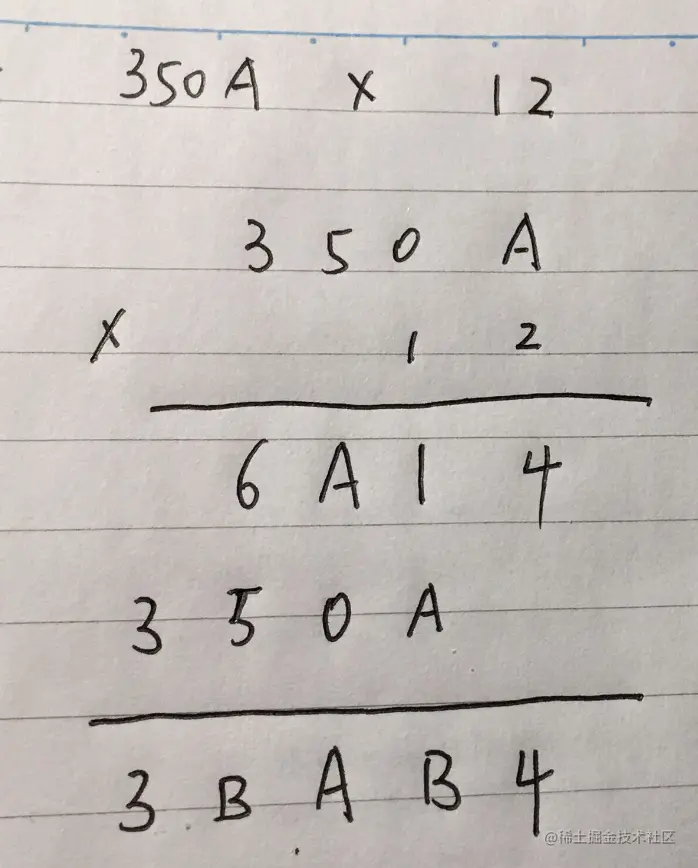 350A × 12
3 5 0 A
× 1 2
6 A 1 4
3 5 0 A
3 B A B 4
@稀土掘金技术社区